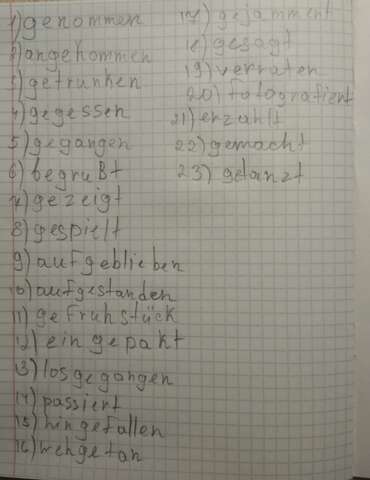 1) genommen
2) angekommen
3) getrunken
4) gegessen
5) gegangen
6) begrußt
7) gezeigt
8) gespielt
9) aufgeblieben
10) aufgestanden
11) gefruhstück
12) eingepakt
13) losgegangen
14) passiert
15) hingefallen
16) wehgetan
17) gejammert
18) gesagt
19) verraten
20) fotografiert
21) erzahlt
22) gemacht
23) getanzt